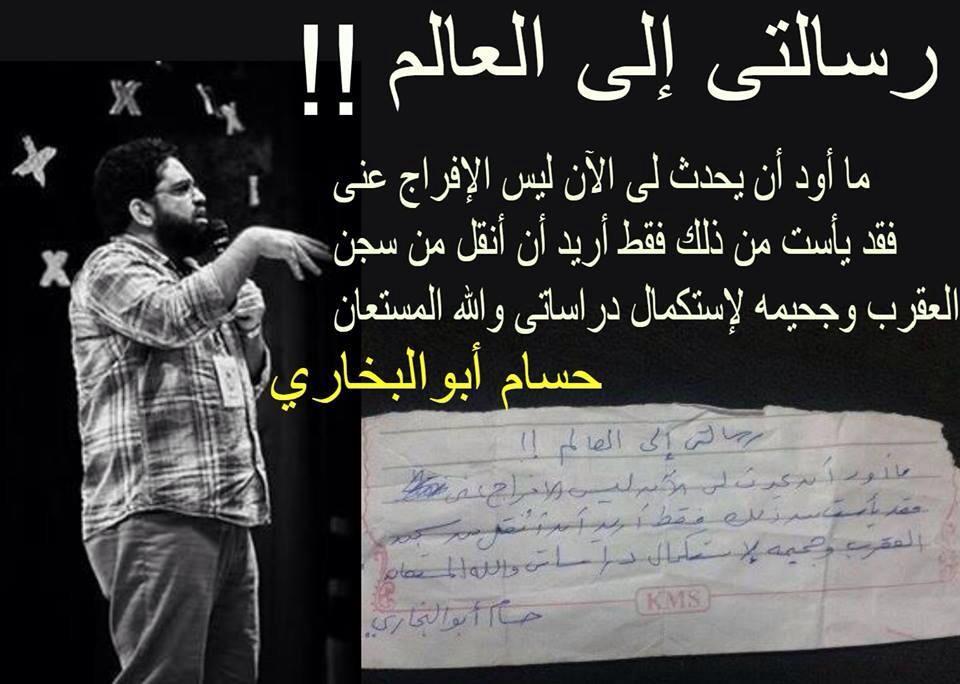 رسالتى إلى العالم !!
ما أود أن يحدث لى الآن ليس الإفراج عنى
فقد يأست من ذلك فقط أريد أن أنقل من سجن
العقرب وجحيمه لإستكمال دراساتى والله المستعان
حسام أبوالبخاري
رسالتى إلى العالم !!
ما أود أن يحدث لى الآن ليس الإفراج عنى
فقد يأست من ذلك فقط أريد أن أنقل من سجن
العقرب وجحيمه لإستكمال دراساتى والله المستعان
KMS
حسام أبوالبخاري